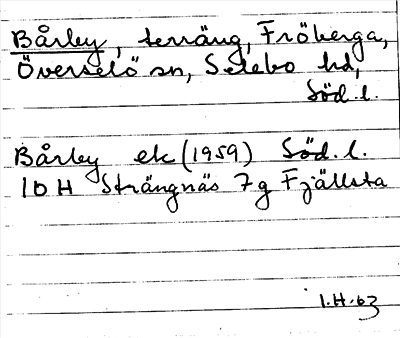 Bårby, terräng, Fröberga,
Överselö sn, Selebo hd,
Söd. l.
Bårby ek (1959) Söd. l.
10 H Strängnäs 7 g Fjällsta
1.H.63